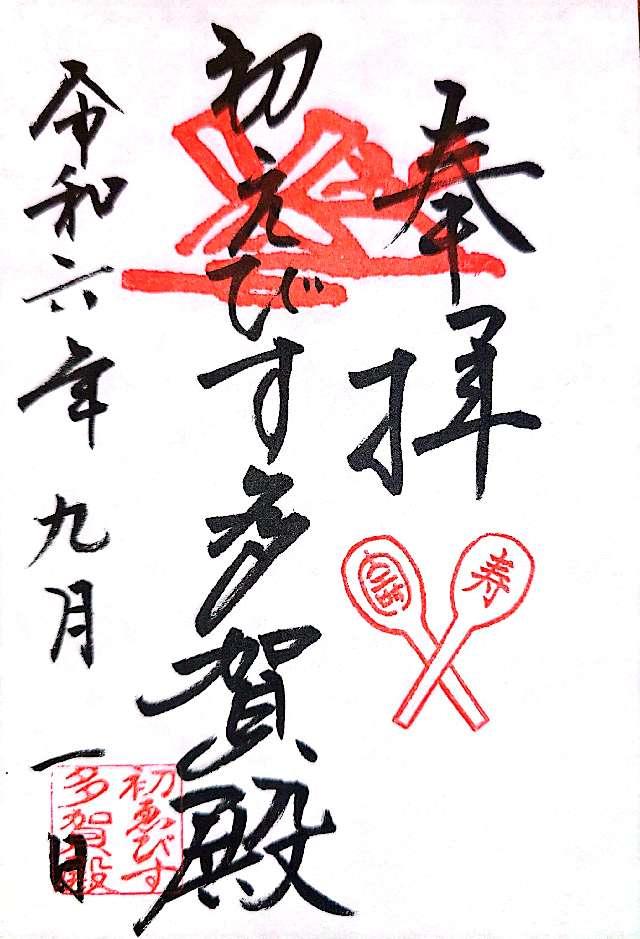 奉拝
寿
初えびす多賀殿
初ゑびす
多賀殿
令和六年九月一日